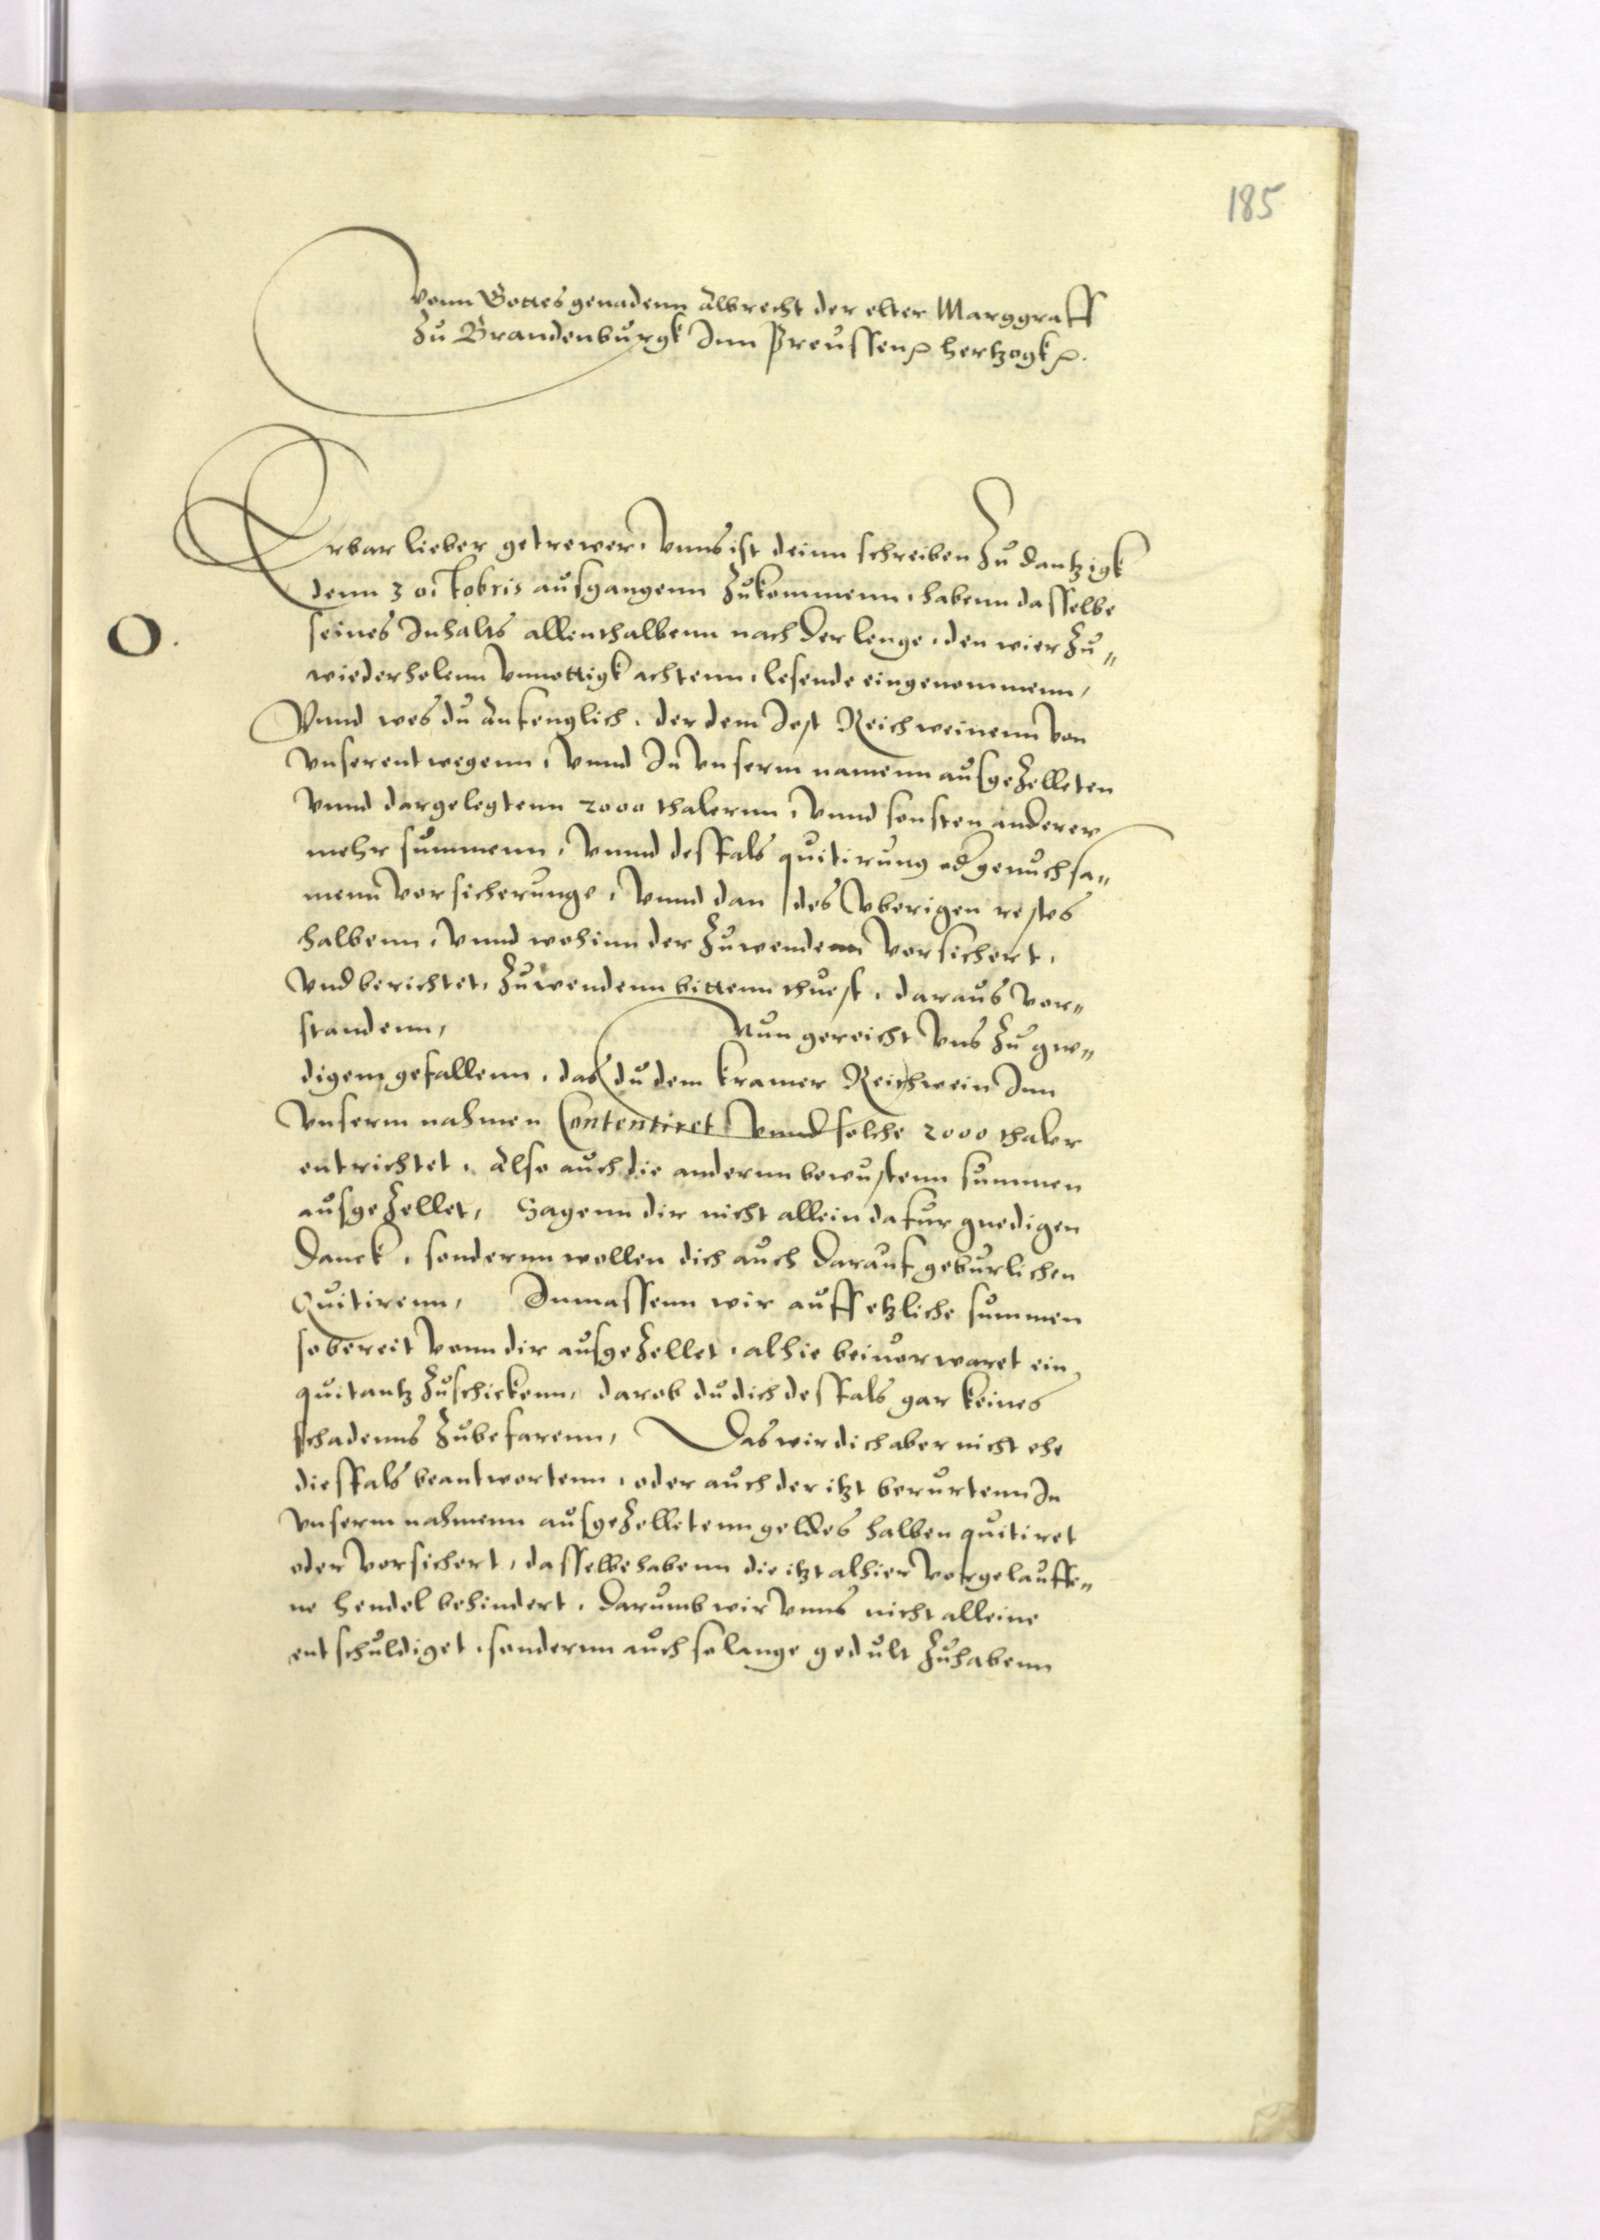 185
Vonn Gottes genadenn Albrecht der elter Marggraff
Zu Brandenburgk Inn Preussenꝛ hertzogkꝛ.
Erbar lieber getrewer, Vnns ist deinn schreiben Zu dantzigk
denn 3 octobris ausgangenn Zukommenn, habenn dasselbe
O.
seines Inhalts allenthalbenn nach der lenge, den wier Zu„
wiederholenn Vnnottigk achtenn, lesende eingenommenn,
Vnnd wes du Anfenglich, der dem Jost Reichweinenn von
Vnserentwegenn, Vnnd In Vnserm namenn ausgeZelleten
Vnnd dargelegtenn 2000 thalernn, Vnnd sonsten anderer
mehr summenn, Vnnd desfals quitirung od genuchsa„
menn Vorsicherunge, Vnnd dan des Vberigen restes
halbenn, Vnnd wohinn der Zuwendenn Vorsichert,
Vnd berichtet, Zuwendenn bittenn thuest, daraus vor„
standenn, Nun gereicht Vns Zu gne„
digem gefallenn, das du dem kramer Reichwein Inn
Vnserm nahmen Contentiret Vnnd solche 2000 thaler
entrichtet, Also auch die andernn bewustenn summen
ausgeZellet, Sagenn dir nicht allein dafur gnedigen
Danck, sondernn wollen dich auch darauf geburlichen
Quitirenn, Inmassenn wir auff etzliche summen
so bereit Vonn dir ausgeZellet, alhie beiuorwaret ein
quitantz Zuschickenn, darob du dich desfals gar keines
schadenns Zubefarenn, Das wir dich aber nicht ehe
diesfals beantwortenn, oder auch der itzt berurtenn In
Vnserm nahmenn ausgeZelletenn geldes halben quitiret
oder Vorsichert, dasselbe habenn die itzt alhier Vorgelauffe„
ne hendel behindert, Darumb wir Vnns nicht alleine
entschuldiget, sondernn auch so lange gedult Zuhabenn